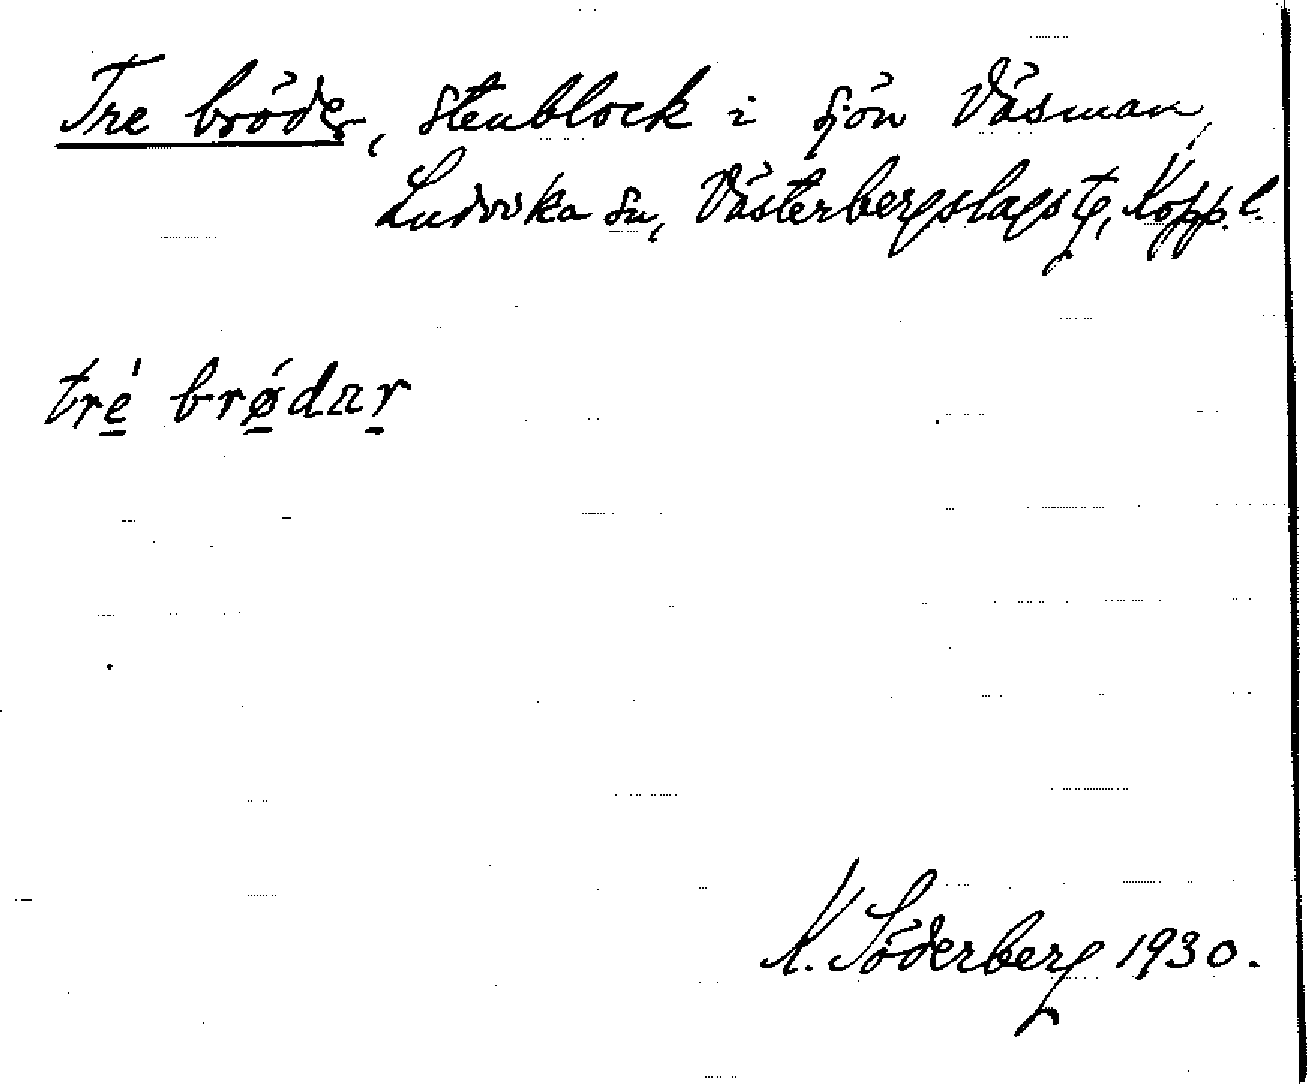 Tre bröder, stenblock i sjön Väsman,
Ludvika sn, Västerbergslags tg, Kopp. l.
tré brǿdᴨr
K. Söderberg 1930.